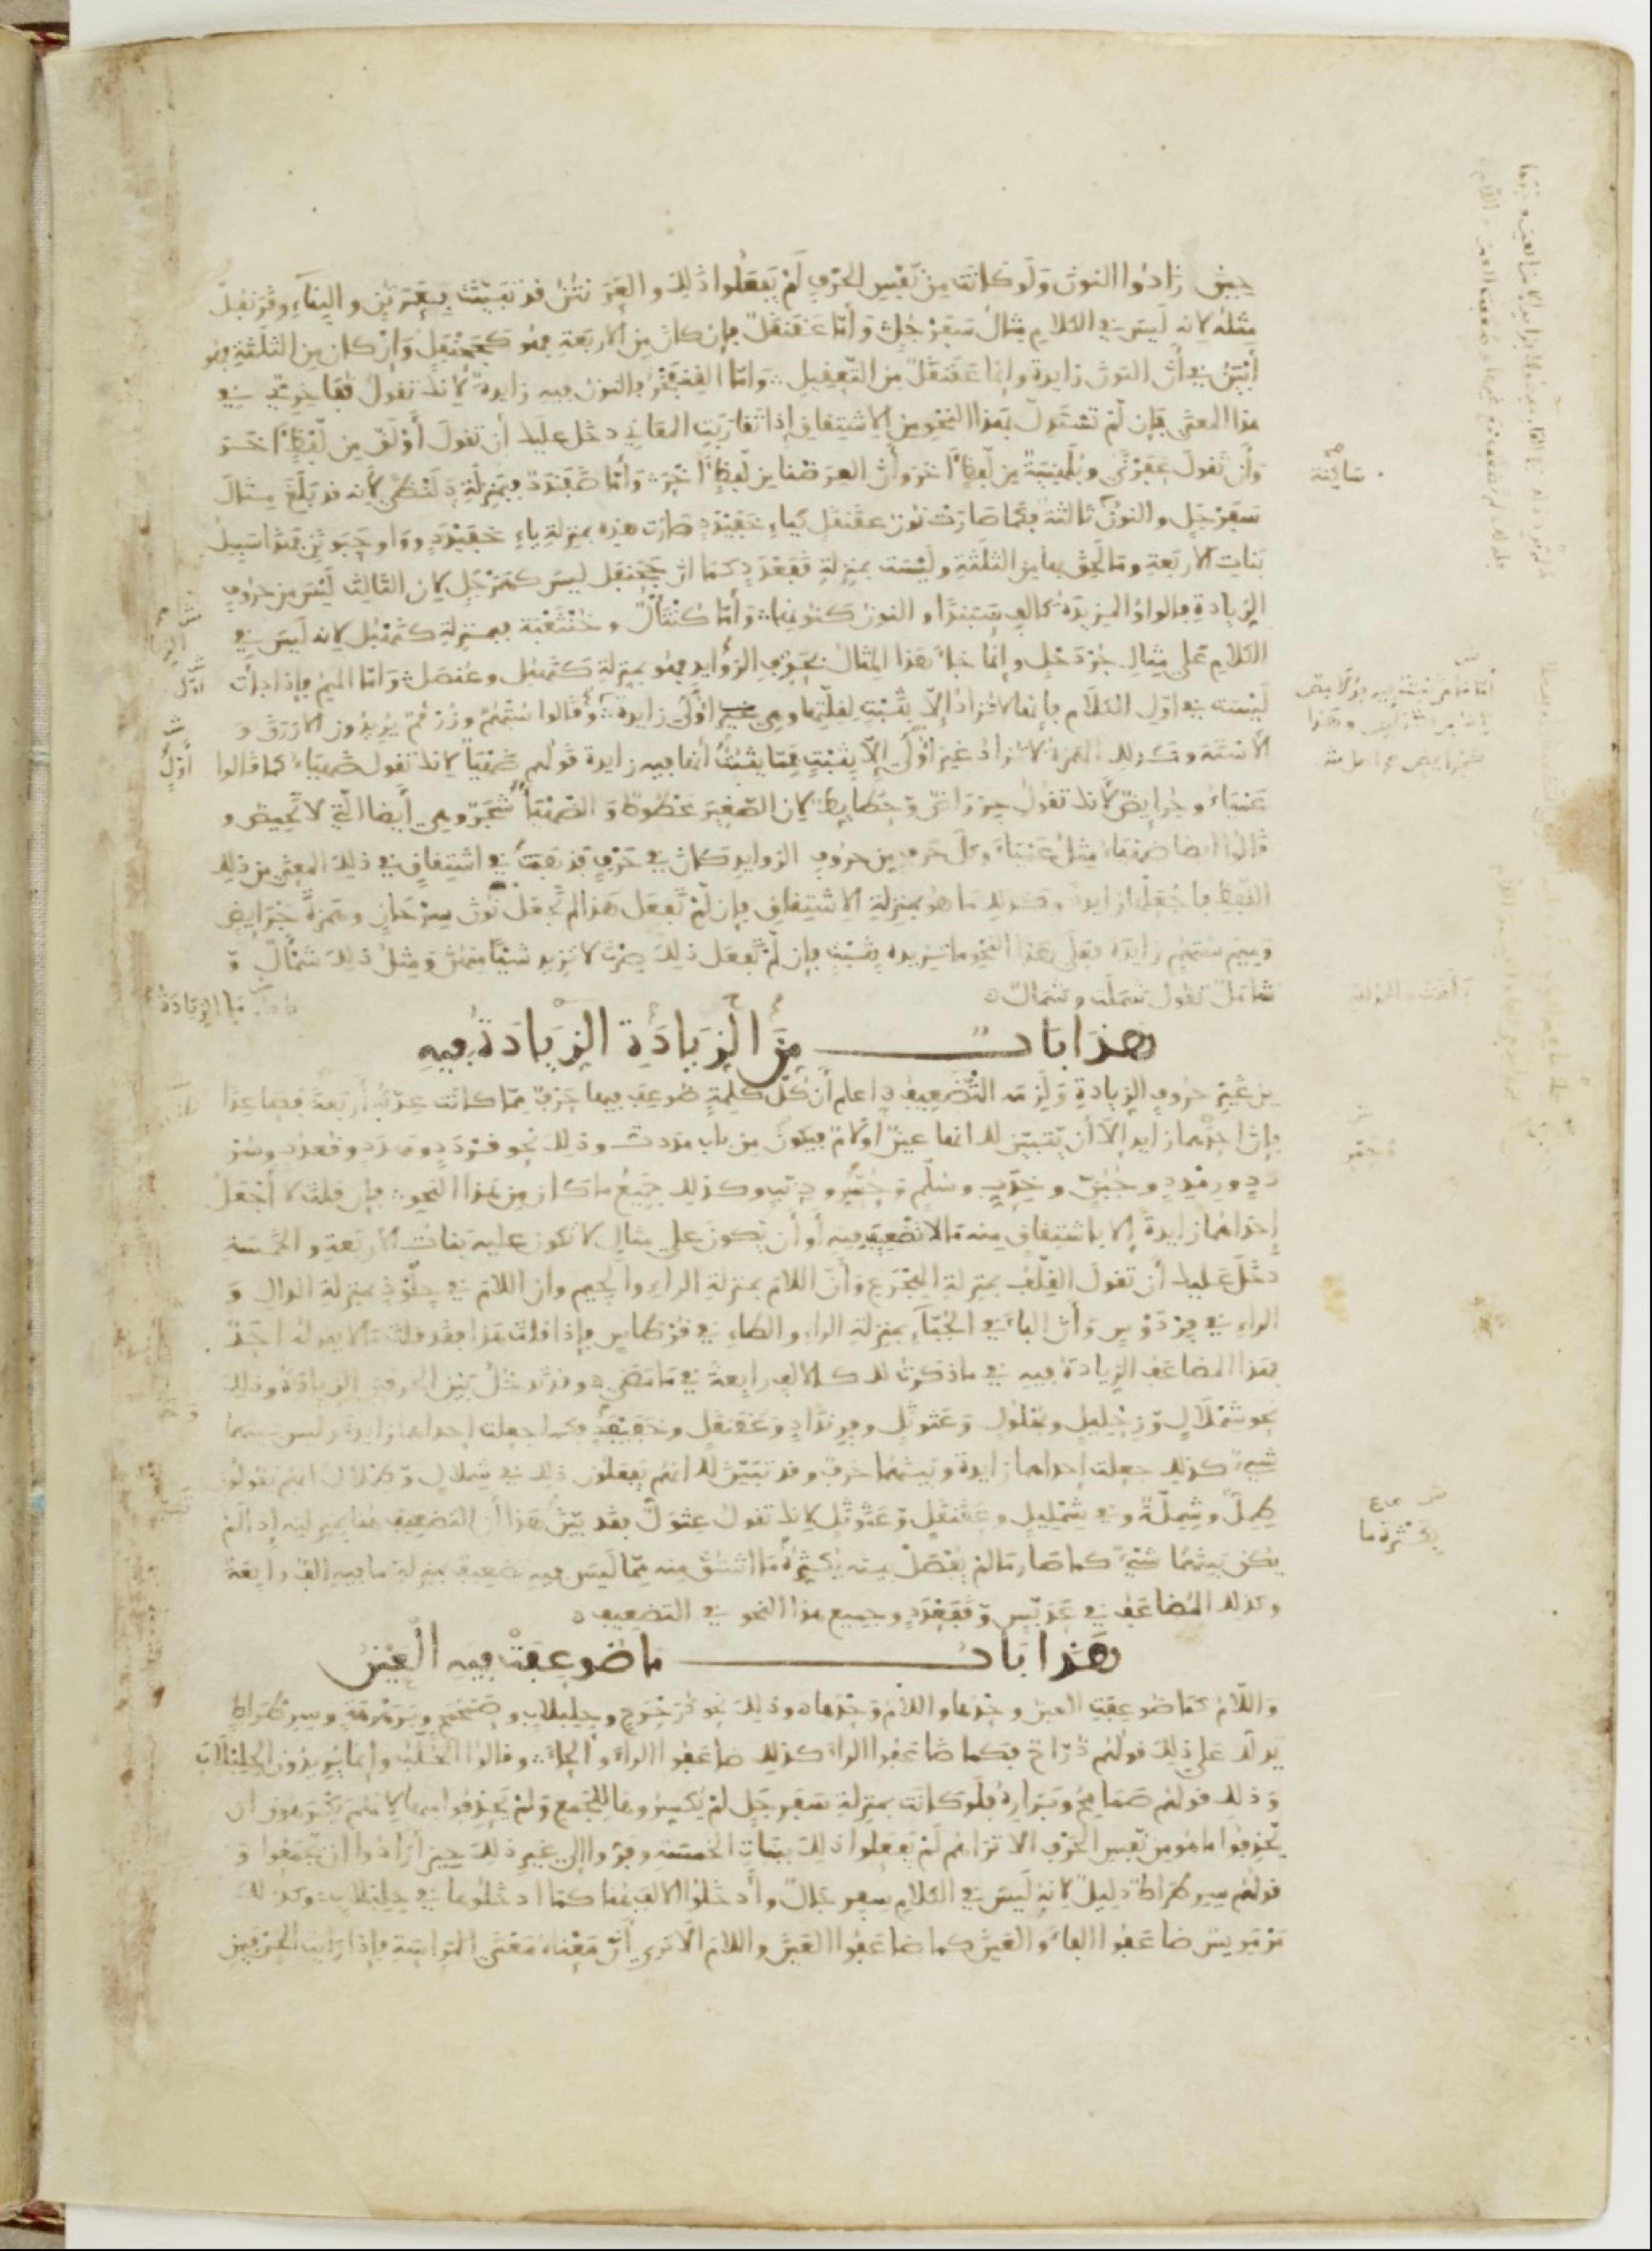 حين زادوا النون ولو كانت من نفس الحرف لم يفعلوا ذلك والعرنتن قد تبينت بعرتن والبناء وقرنفل
مثله لانه ليس في الكلام مثال سفرجل وأما عقنقل فإن كان من الاربعة فهو كجحنفل وإن كان من الثلثة فهو
أبين في أن النون زايدة وإنما عقنقل من التعقيل وأما القنفخر فالنون فيه زايدة لأنك تقول قفاخري في
هذا المعنى فإن لم تستدل بهذا النحو من الاشتقاق إذا تقاربت المعاني دخل عليك أن تقول أولق من لفظ اخر
وأن تقول عفرنى وبلهنية من لفظ اخر وأن العرضنا من لفظ اخر وأما ضفندد فبمنزلة دلنظى لأنه قد بلغ مثال
سفرجل والنون ثالثة فكما صارت نون عقنقل كياء خفيدد صارت هذه بمنزلة ياء خفيدد وواو حبونن فهذا سبيل
بنات الاربعة وما لحق بها من الثلثة وليست بمنزلة قفعدد كما أن جحنفل ليس كهمرجل لان الثالث ليس من حروف
الزيادة فالواو المزيدة كالف سبندا والنون كنونها وأما كنتأل وخنثعبة فبمنزلة كنهبل لانه ليس في
الكلام على مثال جردحل وإنما جاء هذا المثال بحرف الزوايد فهو بمنزلة كنهبل وعنصل وأما الميم فإذا جاءت
ليست في اول الكلام فإنها لا تزاد إلا بثبت لقلتها وهي غير أولى زايدة وقالوا ستهم وزرقم يريدون الازرق و
الأسته وكذلك الهمزة لا تزاد غير أولى إلا بثبت فمما يثبت أنها فيه زايدة قولهم ضهيأ لانك تقول ضهياء كما قالوا
عمياء وجرايض لأنك تقول جرواض وحطايط لان الصغير محطوط والضهيأ شجر وهي أيضا التي لا تحيض و
قالوا ايضا ضهياء مثل عمياء وكل حرف من حروف الزوايد كان في حرف فذهب في اشتقاق في ذلك المعنى من ذلك
اللفظ فاجعلها زايدة وكذلك ما هو بمنزلة الاشتقاق فإن لم تفعل هذا لم تجعل نون سرحان وهمزة جرايض
وميم ستهم زايدة فعلى هذا النحو ما تزيده بثبت فإن لم تفعل ذلك صرت لا تزيد شيئا منهن ومثل ذلك شمأل و
شأمل تقول شملت وشمال
هذا باب من الزيادة الزيادة فيه
من غير حروف الزيادة ولزمه التضعيف اعلم أن كل كلمة ضوعف فيها حرف مما كانت عدته أربعة فصاعدا
فإن احدهما زايد إلا أن يتبين لك انها عين او لام فيكون من باب مددت وذلك نحو قردد ومهدد وقعدد وسؤ
دد ورمدد وجبن وخدب وسلم وحمر ودنب وكذلك جميع ما كان من هذا النحو فإن قلت لا أجعل
إحداهما زايدة إلا باشتقاق منه ما لا تضعيف فيه أو أن يكون على مثال لا تكون عليه بنات الاربعة والخمسة
دخل عليك أن تقول القلف بمنزلة الهجرع وأن اللام بمنزلة الراء والجيم وأن اللام في جلوز بمنزلة الدال و
الراء في فردوس وأن الباء في الجباء بمنزلة الراء والطاء في قرطاس فإذا قلت هذا فقد قلت ما لا يقوله احد
فهذا المضاعف الزيادة فيه في ما ذكرت لك كالالف رابعة في ما مضى وقد تدخل بين الحرفين الزيادة وذلك
نحو شملال وزحليل وبهلول وعثوثل وفرنداد وعقنقل وخفيفد فكما جعلت إحداهما زايدة وليس بينهما
شيء كذلك جعلت إحداهما زايدة وبينهما حرف وقد تبين لك انهم يفعلون ذلك في شملال وطملال انهم يقولون
طمل وشملة وفي شمليل وعقنقل وعثوثل لانك تقول عثول فقد بين هذا أن التضعيف هنا بمنزلته إذا لم
يكن بينهما شيء كما صار ما لم يفصل بينه بكثرة ما اشتق منه مما ليس فيه تضعيف بمنزلة ما فيه الف رابعة
وكذلك المضاعف في عدبس وقفعدد وجميع هذا النحو في التضعيف
هذا باب ما ضوعفت فيه العين
واللام كما ضوعفت العين وحدها واللام وحدها وذلك نحو ذرحرح وحلبلاب وصمحمح وبرهرهة وسرطراط
يدلك على ذلك قولهم ذراح فكما ضاعفوا الراء كذلك ضاعفوا الراء والحاء وقالوا الحلب وإنما يريدون الحلبلاب
وذلك قولهم صمامح وبراره فلو كانت بمنزلة سفرجل لم يكسروها للجمع ولم يحذفوا منها لانهم يكرهون ان
يحذفوا ما هو من نفس الحرف الا تراهم لم يفعلوا ذلك ببنات الخمسة وفروا إلى غير ذلك حين أرادوا أن يجمعوا و
قولهم سرطراط دليل لانه ليس في الكلام سفرجال وأدخلوا الالف هنا كما ادخلوها في حلبلاب وكذلك
مرمريس ضاعفوا الفاء والعين كما ضاعفوا العين واللام ألا ترى أن معناه معنى المراسة فإذا رايت الحرفين
ساكنة
بكثرة ما